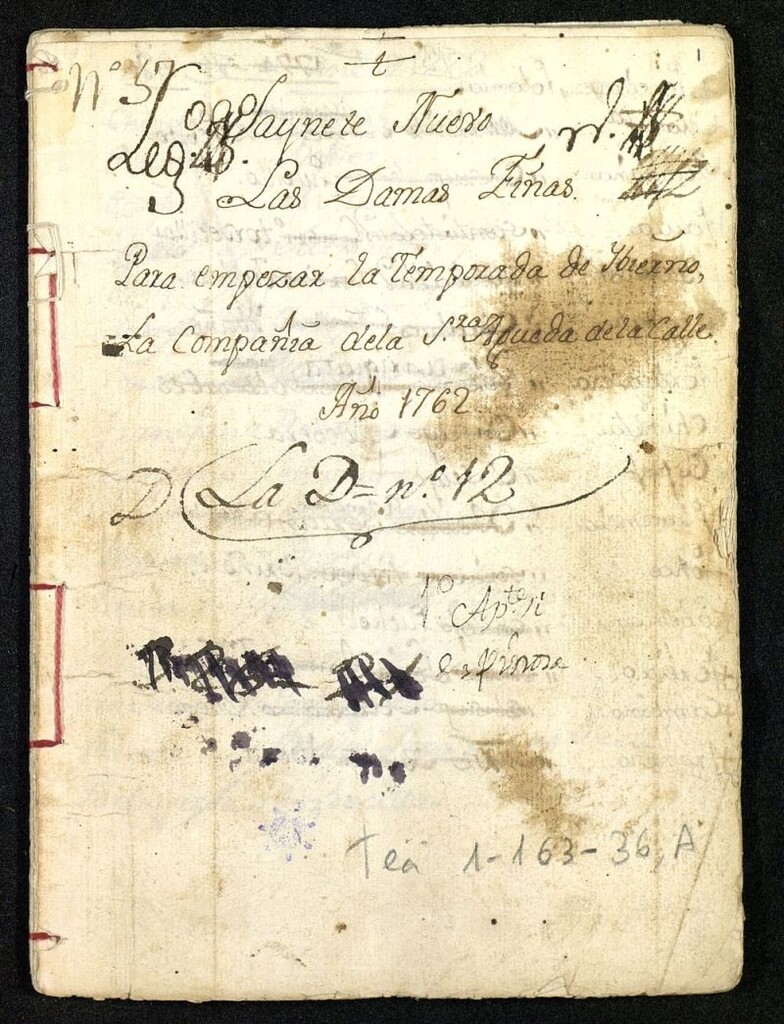 1
Nº 57
Saynete Nuevo
Leg. 45.
Las Damas Finas.
Para empezar la Temporada de Ybierno,
La Compañia dela S.ra Agueda dela Calle.
Año 1762
D La D= nº. 12
1º Ap.te
espinosa
Tea 1-163-36, A